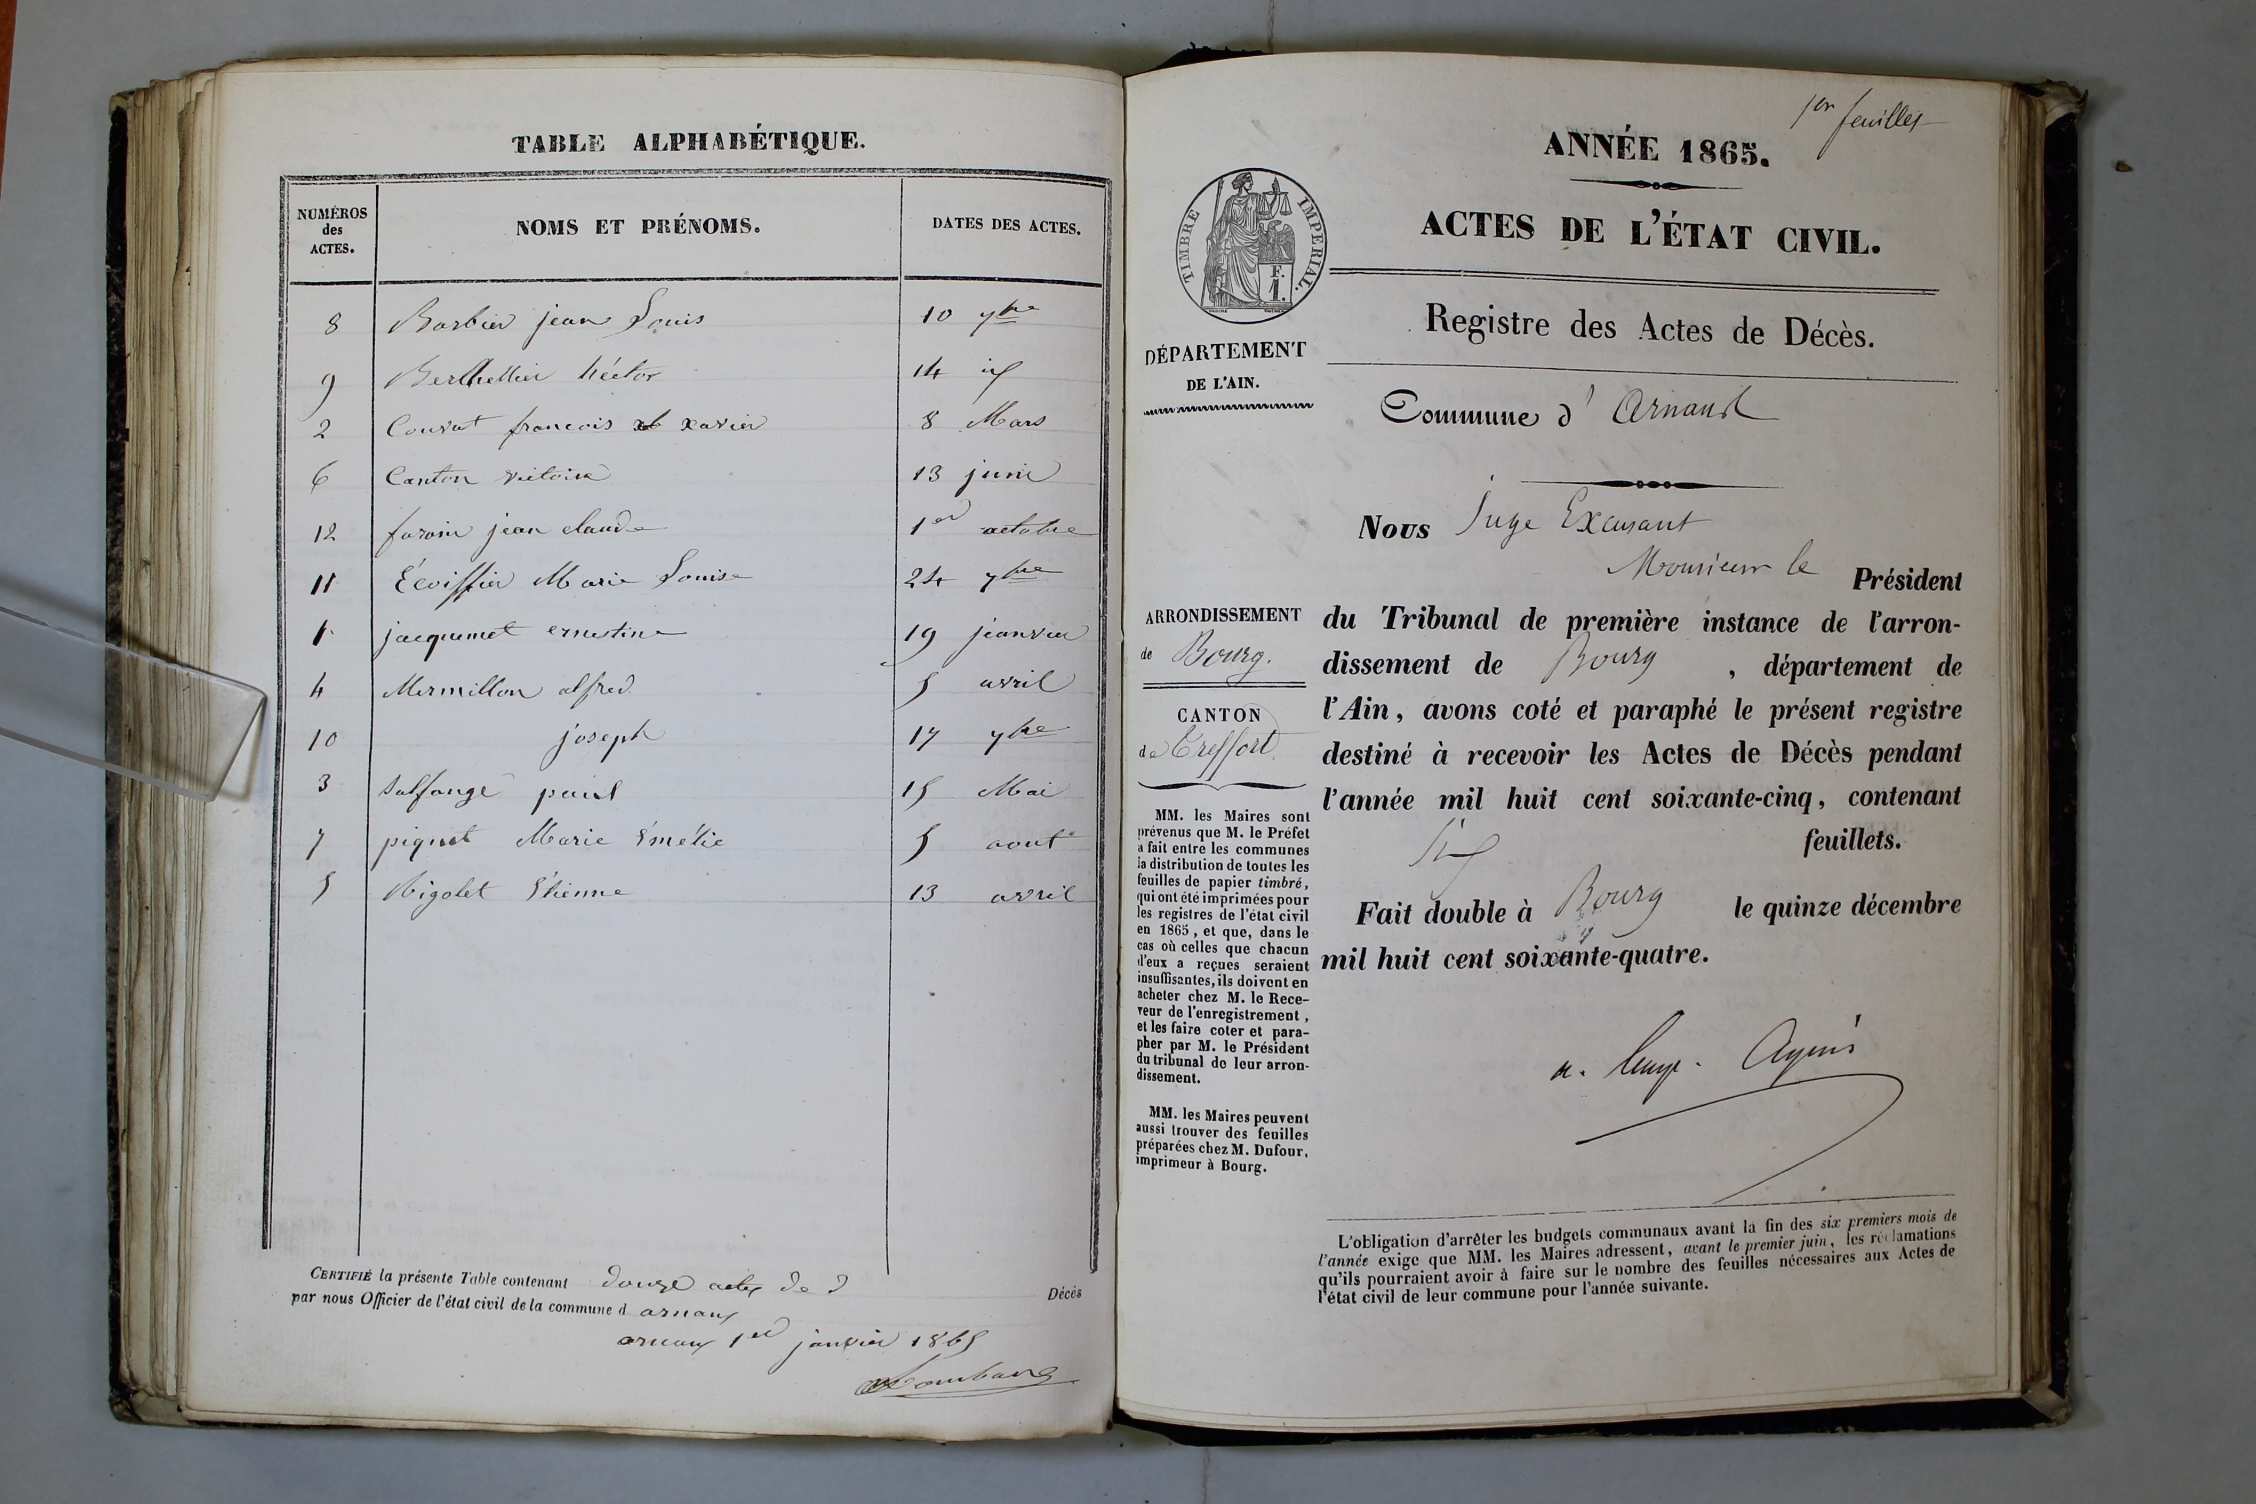 TABLE ALPHABÉTIQUE.
NUMÉROS
des
ACTES.
NOMS ET PRÉNOMS.
DATES DES ACTES.
8 Barbier jean Louis 10 7bre
9 Berthellier héctor 14 id
2 Couvat francois xavier 8 Mars
6 Canton victoire 13 juin
12 jean claude 1er octobre
11 Écoiffier Marie Louise 24 7bre
1 jacquemet ernestine 19 jeanvier
4 Mermillon alfred 5 avril
10 joseph 17 7bre
3 Salfange paul 15 Mai
7 piquet Marie Émélie 5 aout
5 Rigolet Étienne 13 avril
CERTIFIÉ la présente Table contenant douze actes de d Décès
par nous Officier de l'état civil de la commune d arnans
arnans 1er janvier 1865
1er feuillet
ANNÉE 1865.
ACTES DE L'ÉTAT CIVIL.
TIMBRE IMPERIAL.
F.
1.
Registre des Actes de Décès.
DÉPARTEMENT
DE L'AIN.
Commune d' Arnand
Nous Juge Excusant
Monsieur le Président
du Tribunal de première instance de l'arron-
dissement de Bourg, département de
l'Ain, avons coté et paraphé le présent registre
destiné à recevoir les Actes de Décès pendant
l'année mil huit cent soixante-cinq, contenant
six feuillets.
Fait double à Bourg le quinze décembre
mil huit cent soixante-quatre.
ARRONDISSEMENT
de Bourg.
CANTON
de Treffort
MM. les Maires sont
prévenus que M. le Préfet
a fait entre les communes
la distribution de toutes les
feuilles de papier timbré,
qui ont été imprimées pour
les registres de l'état civil
en 1865, et que, dans le
cas où celles que chacun
d'eux a reçues seraient
insuffisantes, ils doivent en
acheter chez M. le Rece-
veur de l'enregistrement,
et les faire coter et para-
pher par M. le Président
du tribunal de leur arron-
dissement.
MM. les Maires peuvent
aussi trouver des feuilles
préparées chez M. Dufour,
imprimeur à Bourg.
L'obligation d'arrêter les budgets communaux avant la fin des six premiers mois de
l'année exige que MM. les Maires adressent, avant le premier juin, les réclamations
qu'ils pourraient avoir à faire sur le nombre des feuilles nécessaires aux Actes de
l'état civil de leur commune pour l'année suivante.